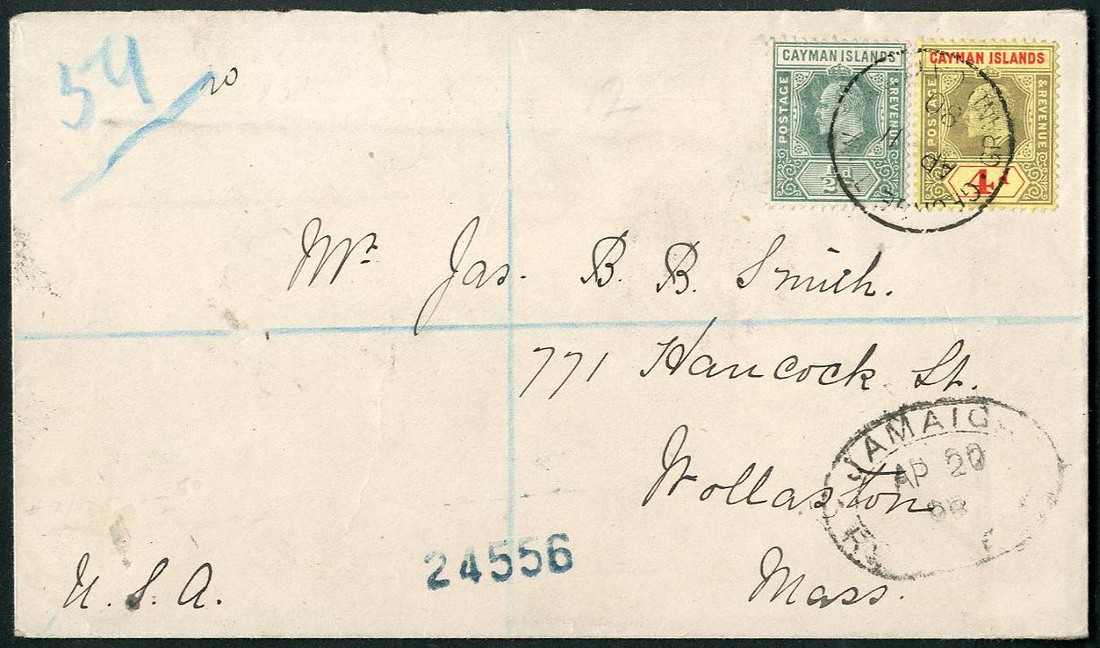 54
20
CAYMAN ISLANDS
POSTAGE
& REVENUE
½d
CAYMAN ISLANDS
POSTAGE
& REVENUE
4d
Mr. Jas. B. B. Smith.
771 Hancock St.
Wollaston
Mass.
U. S. A.
24556
JAMAICA
AP 20
08